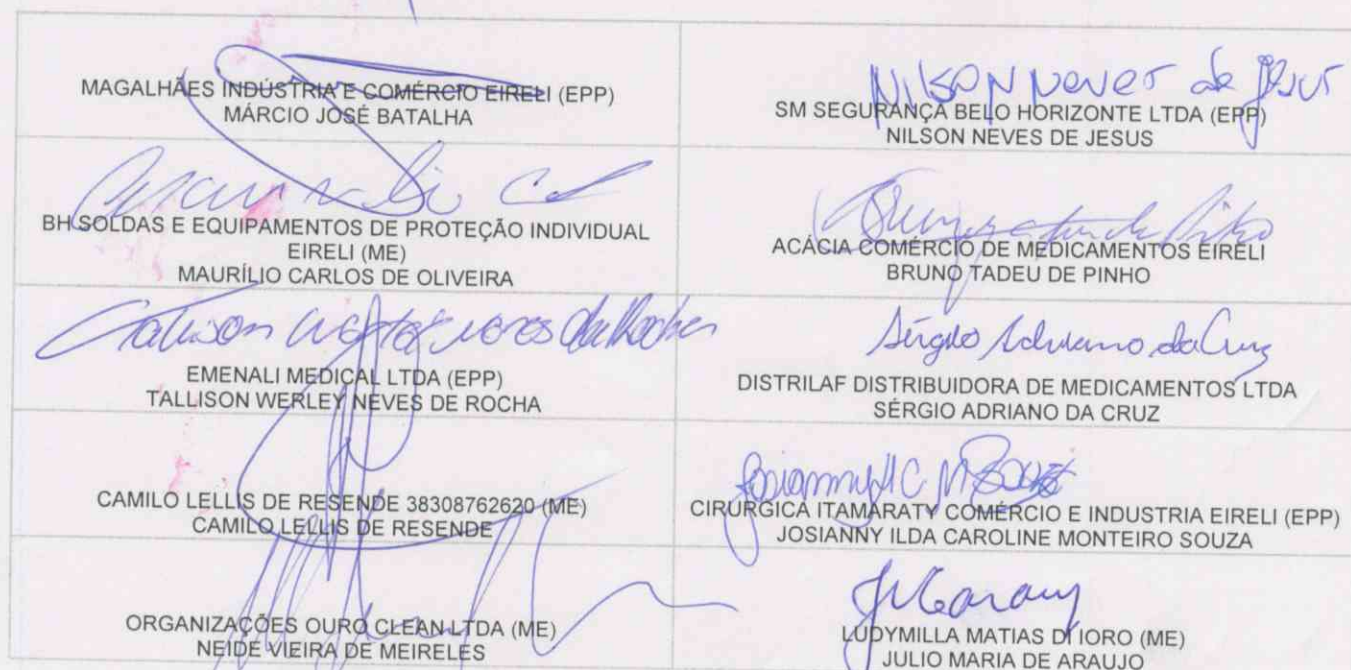 MAGALHÃES INDÚSTRIA E COMÉRCIO EIRELI (EPP)
MÁRCIO JOSÉ BATALHA
Nilson Neves de Jesus
SM SEGURANÇA BELO HORIZONTE LTDA (EPP)
NILSON NEVES DE JESUS
BH SOLDAS E EQUIPAMENTOS DE PROTEÇÃO INDIVIDUAL
EIRELI (ME)
MAURÍLIO CARLOS DE OLIVEIRA
ACÁCIA COMÉRCIO DE MEDICAMENTOS EIRELI
BRUNO TADEU DE PINHO
EMENALI MEDICAL LTDA (EPP)
TALLISON WERLEY NEVES DE ROCHA
Sérgio Adriano da Cruz
DISTRILAF DISTRIBUIDORA DE MEDICAMENTOS LTDA
SÉRGIO ADRIANO DA CRUZ
CAMILO LELLIS DE RESENDE 38308762620 (ME)
CAMILO LELLIS DE RESENDE
CIRURGICA ITAMARATY COMÉRCIO E INDUSTRIA EIRELI (EPP)
JOSIANNY ILDA CAROLINE MONTEIRO SOUZA
ORGANIZAÇÕES OURO CLEAN LTDA (ME)
NEIDE VIEIRA DE MEIRELES
LUDYMILLA MATIAS DI IORO (ME)
JULIO MARIA DE ARAUJO